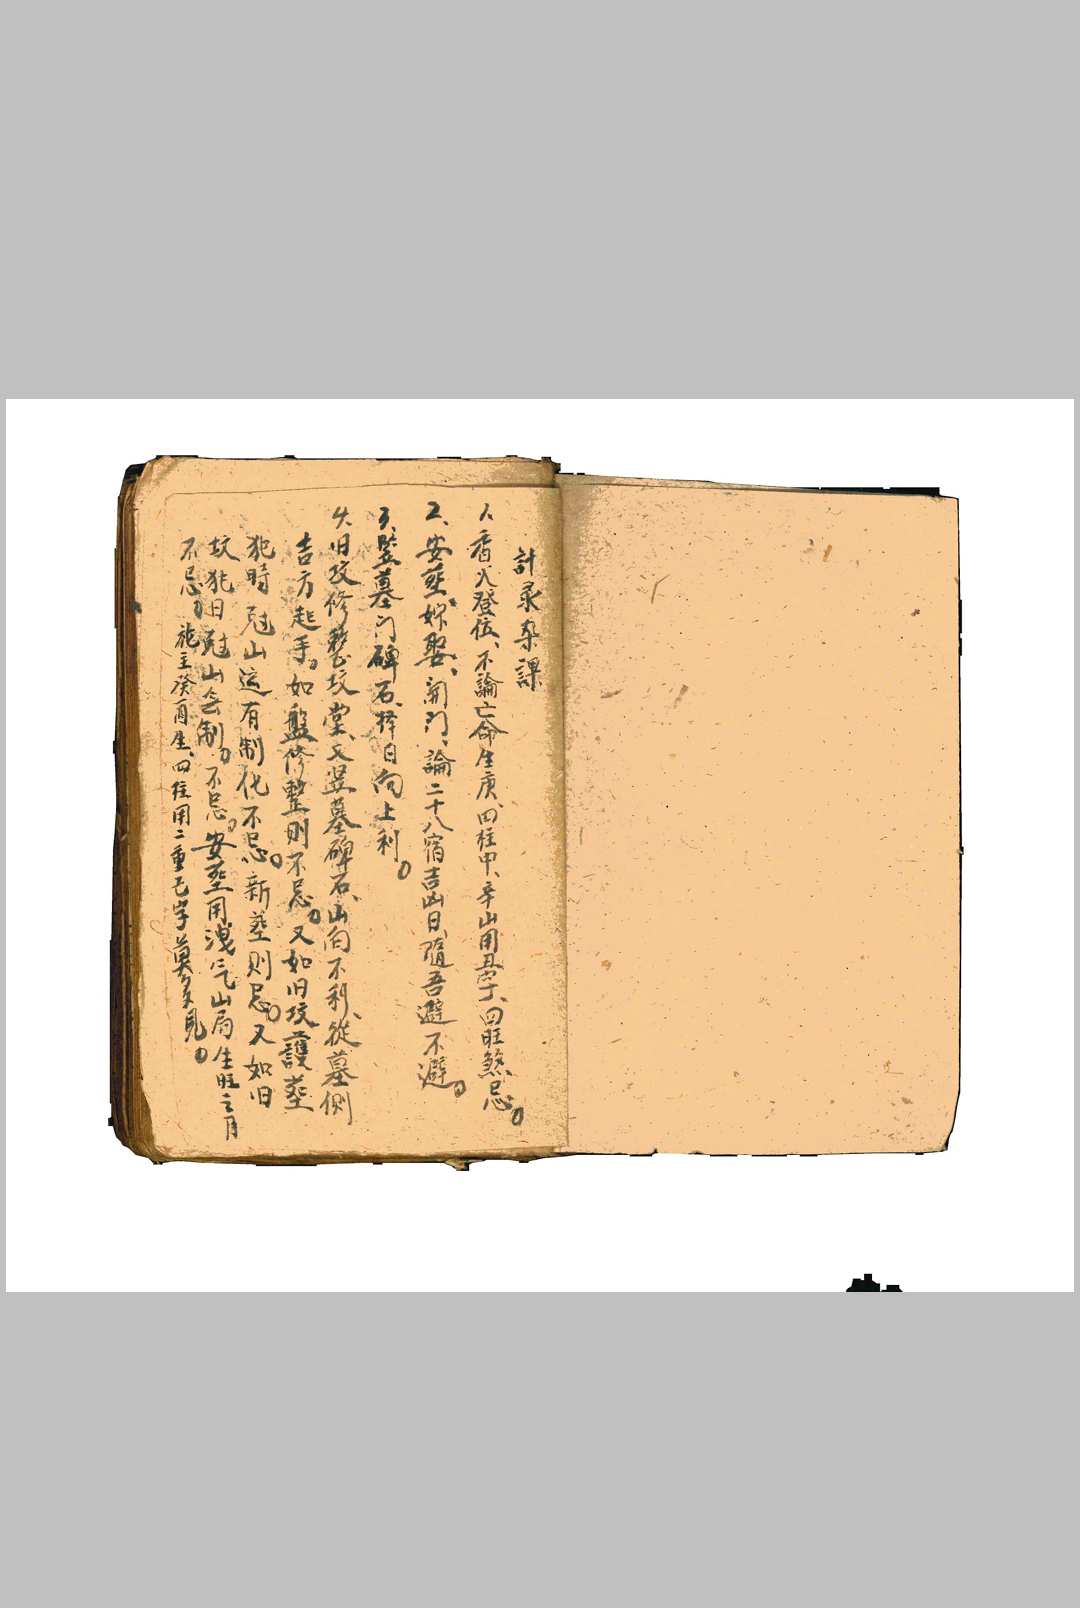 計录杂課
1、香火登位、不論亡命生庚、四柱甲、辛山用丑字、回旺煞忌。
2、安葬、嫁娶、開门、論二十八宿吉凶日、隨吾避不避。
3、竪墓门碑石、择日向上利。
4、旧坟修整坟堂、又竖墓碑石、山向不利、從墓側
吉方起手。如盤修整則不忌。又如旧坟護葬
犯時尅山运有制化不忌。新葬则忌。又如旧
坟犯日尅山会制。不忌。安葬用洩气山局生旺之月
不忌。施主癸酉生、四柱用二重己字莫多見。